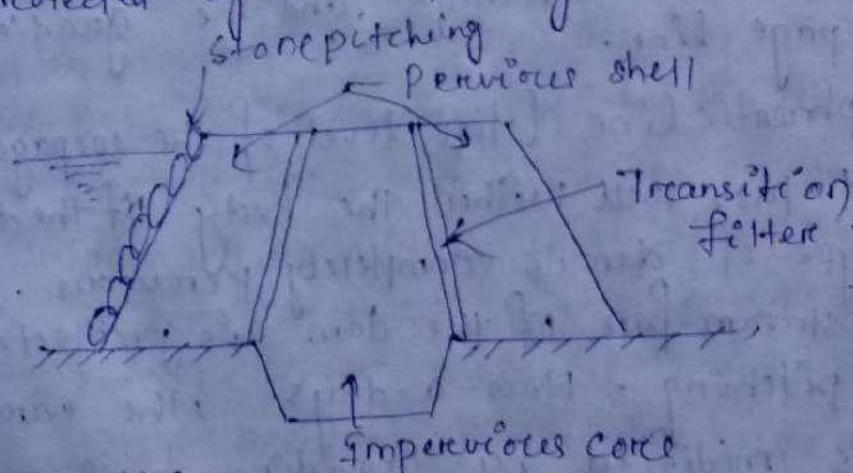 stonepitching
Pervious shell
Transition
filter
Impervious core